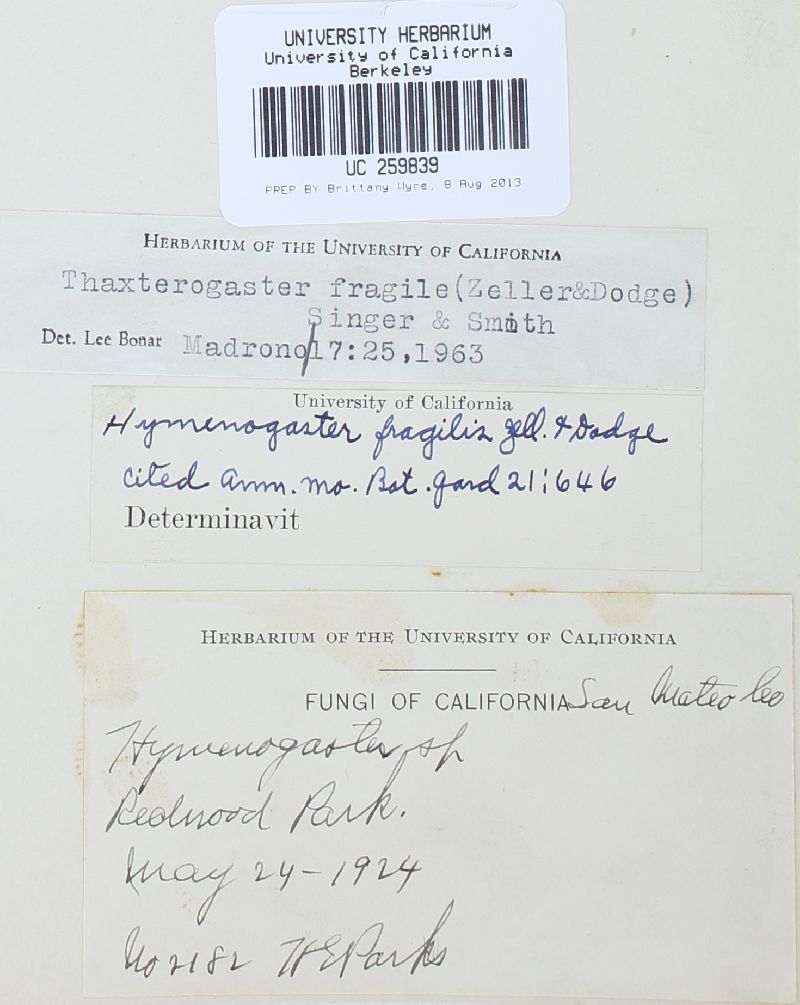 UNIVERSITY HERBARIUM
University of California
Berkeley
UC 259839
PREP BY Brittany Wyre, 8 Aug 2013
HERBARIUM OF THE UNIVERSITY OF CALIFORNIA
Thaxterogaster fragile(Zeller&Dodge)
Singer & Smith
Det. Lee Bonar Madrono/17:25,1963
University of California
Hymenogaster fragilis Zell. & Dodge
cited Ann. Mo. Bot. Gard 21:646
Determinavit
HERBARIUM OF THE UNIVERSITY OF CALIFORNIA
FUNGI OF CALIFORNIA San Mateo Co
Hymenogaster sp
Redwood Park.
May 24-1924
No 2182 HE Parks